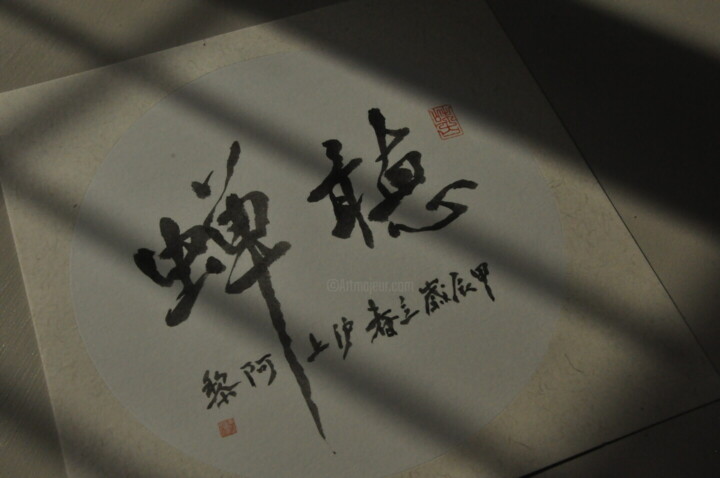 聽蟬
甲辰歲立春滬上
阿黎
©Artmajeur.com